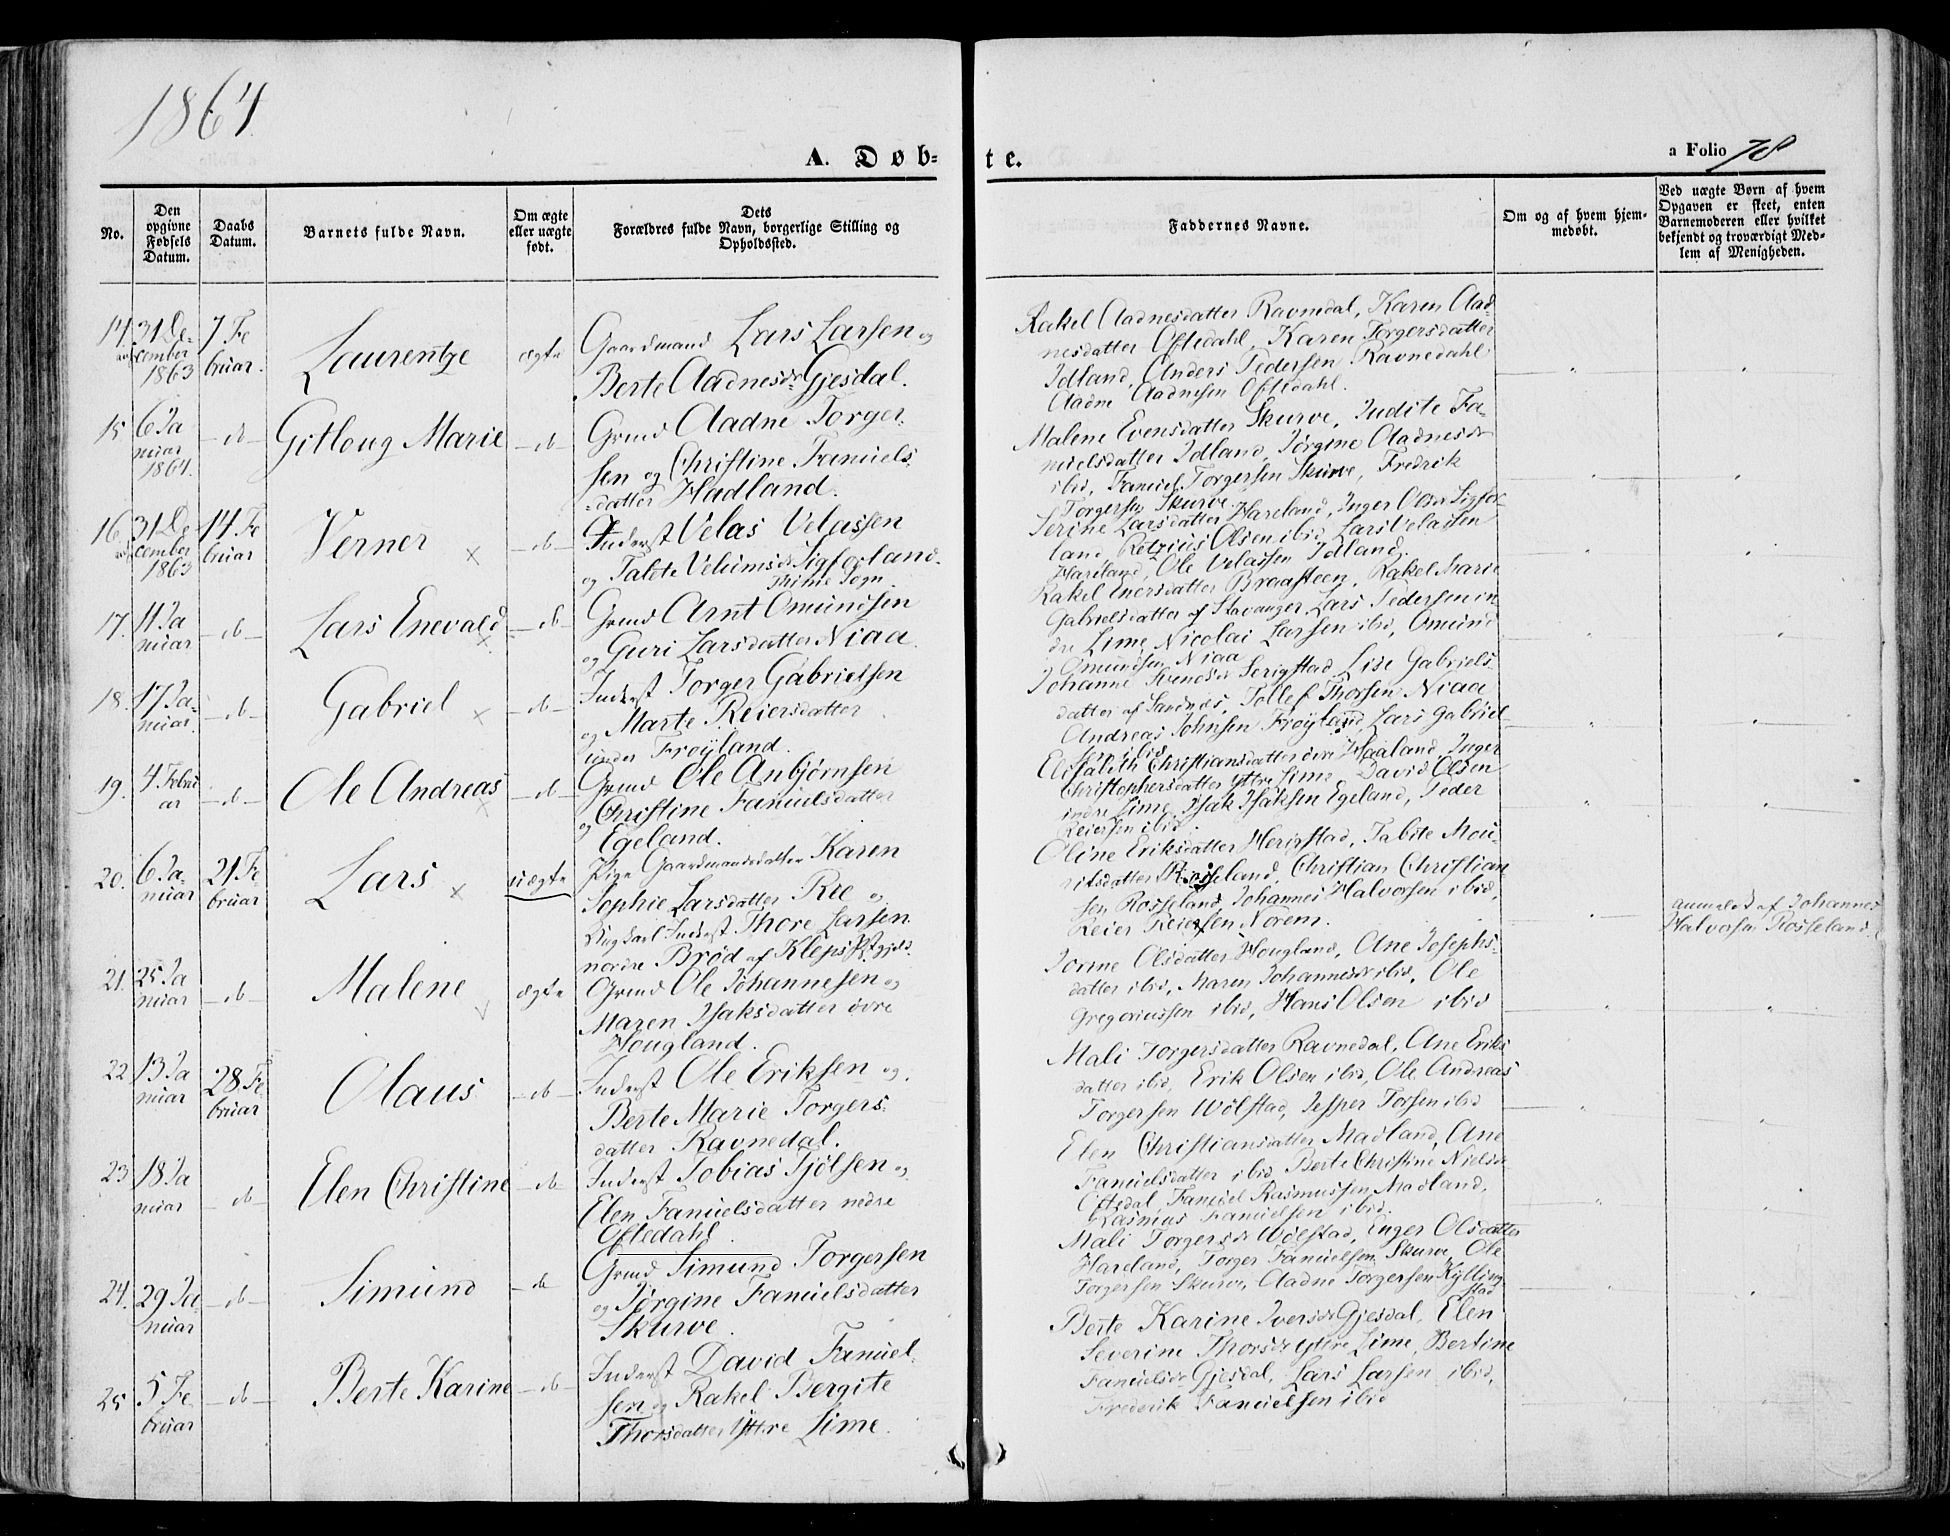 1864
A. Døb-
te.
a Folio 78
No.
Den opgivne Fødsels Datum.
Daabs Datum.
Barnets fulde Navn.
Om ægte eller uægte født.
Dets Forældres fulde Navn, borgerlige Stilling og Opholdssted.
Faddernes Navne.
Om og af hvem hjem-
medøbt.
Ved uægte Børn af hvem
Opgaven er skeet, enten
Barnemoderen eller hvilket
bekjendt og troværdigt Med-
lem af Menigheden.
14. 31 De-
cember
1863
7 Fe
bruar.
Laurentze
ægte
Gaardmand Lars Larsen og
Berte Aadnesdr Gjesdal.
Rakel Aadnesdatter Ravnedal, Karen Aad-
nesdatter Oftedahl, Karen Torgersdatter
Idland, Anders Pedersen Ravnedahl
Aadne Aadnesen Oftedahl.
15 6 Ja
nuar
1864.
- do -
Gitloug Marie
- do -
Grmd Aadne Torger
sen og Christine Fanuels
=datter Hadland.
Malene Evensdatter Skurve, Judite Fa-
nuelsdatter Idland, Jørgine Aadnesdr
ibid, Fanuel Torgersen Skurve, Fredrik
Torgersen Skurve
16. 31 De
cember
1863
14 Fe
bruar
Verner
- do -
Inderst Velas Velassen
og Talete Velumsdr Sigforland.
Thime Sogn.
Serine Larsdatter Hareland, Inger Olsdr Sigfor
land, Retzius Olsen ibid, Lars Velassen
Hareland, Ole Velassen Idland.
17. 11 Ja
nuar
- do -
Lars Enevald
- do -
Grmd Arnt Omundsen
og Guri Larsdatter Niaa.
Rakel Enersdatter Braasteen, Rakel Marie
Gabrielsdatter af Stavanger, Lars Pedersen in-
dre Lime, Nicolai Larsen ibid, Omund
Omundsen Niaa
18. 17 Ja-
nuar.
- do -
Gabriel
- do -
Inderst Torger Gabrielsen
og Marte Reiersdatter
under Frøyland.
Johanne Svendsdr Serigstad, Lise Gabriels-
datter af Sandnes, Tollef Thorsen Niaa
Andreas Johnsen Frøyland, Lars Gabriel
sen ibid
19. 4 Febru
ar
- do -
Ole Andreas
- do -
Grmd Ole Anbjørnsen
og Christine Fanuelsdatter
Egeland.
Elisabeth Christiansdatter øvre Haaland, Inger
Christophersdatter yttre Lime, David Olsen
indre Lime, Isak Isaksen Egeland, Peder
Reiersen ibid
20. 6 Ja-
nuar
21 Fe-
bruar
Lars
uægte
Pige Gaardmandsdatter Karen
Sophie Larsdatter Ree og
Ungkarl Inderst Thore Larsen
nordre Brød af Kleps Pr.gjeld.
Oline Eriksdatter Herigstad, Tabite Mou-
ritsdatter Rosseland, Christian Christian
sen Rosseland, Johannes Halvorsen ibid,
Reier Reiersen Norem.
anmeldt af Johannes
Halvorsen Rosseland
21. 25 Ja
nuar
- do -
Malene
ægte
Grmd Ole Johannesen og
Maren Isaksdatter øvre
Hougland.
Jorine Olsdatter Hougland, Ane Josephs-
datter ibid, Maren Johannesdr ibid, Ole
Gregoriussen ibid, Hans Olsen ibid
22 13 Ja
nuar
28 Fe
bruar
Olaus
- do -
Inderst Ole Eriksen og
Berte Marie Torgers-
datter Ravnedal.
Mali Torgersdatter Ravnedal, Ane Eriks
datter ibid, Erik Olsen ibid, Ole Andreas
Torgersen Wølstad, Jesper Torsen ibid
23 18 Ja
nuar
- do -
Elen Christine
- do -
Inderst Tobias Tjølsen og
Elen Fanuelsdatter nedre
Oftedahl.
Elen Christiansdatter Madland, Ane
Fanuelsdatter ibid, Berte Christine Nielsdr
Oftedal, Fanuel Rasmussen Madland,
Rasmus Fanuelsen ibid.
24. 29 Ja
nuar
- do -
Simund
- do
Grmd Simund Torgersen
og Jørgine Fanuelsdatter
Skurve.
Mali Torgersdr Wølstad, Enger Olsdatter
Hareland, Torger Fanuelsen Skurve, Ole
Torgersen Skurve, Aadne Torgersen Kylling
stad
25 5 Fe
bruar
- do -
Berte Karine
- do -
Inderst David Fanuel-
sen og Rakel Bergite
Thorsdatter Yttre Lime.
Berte Karine Iversdr Gjesdal, Elen
Severine Thorsdr Yttre Lime, Bertine
Fanuelsdr Gjesdal, Lars Larsen ibid,
Frederik Fanuelsen ibid